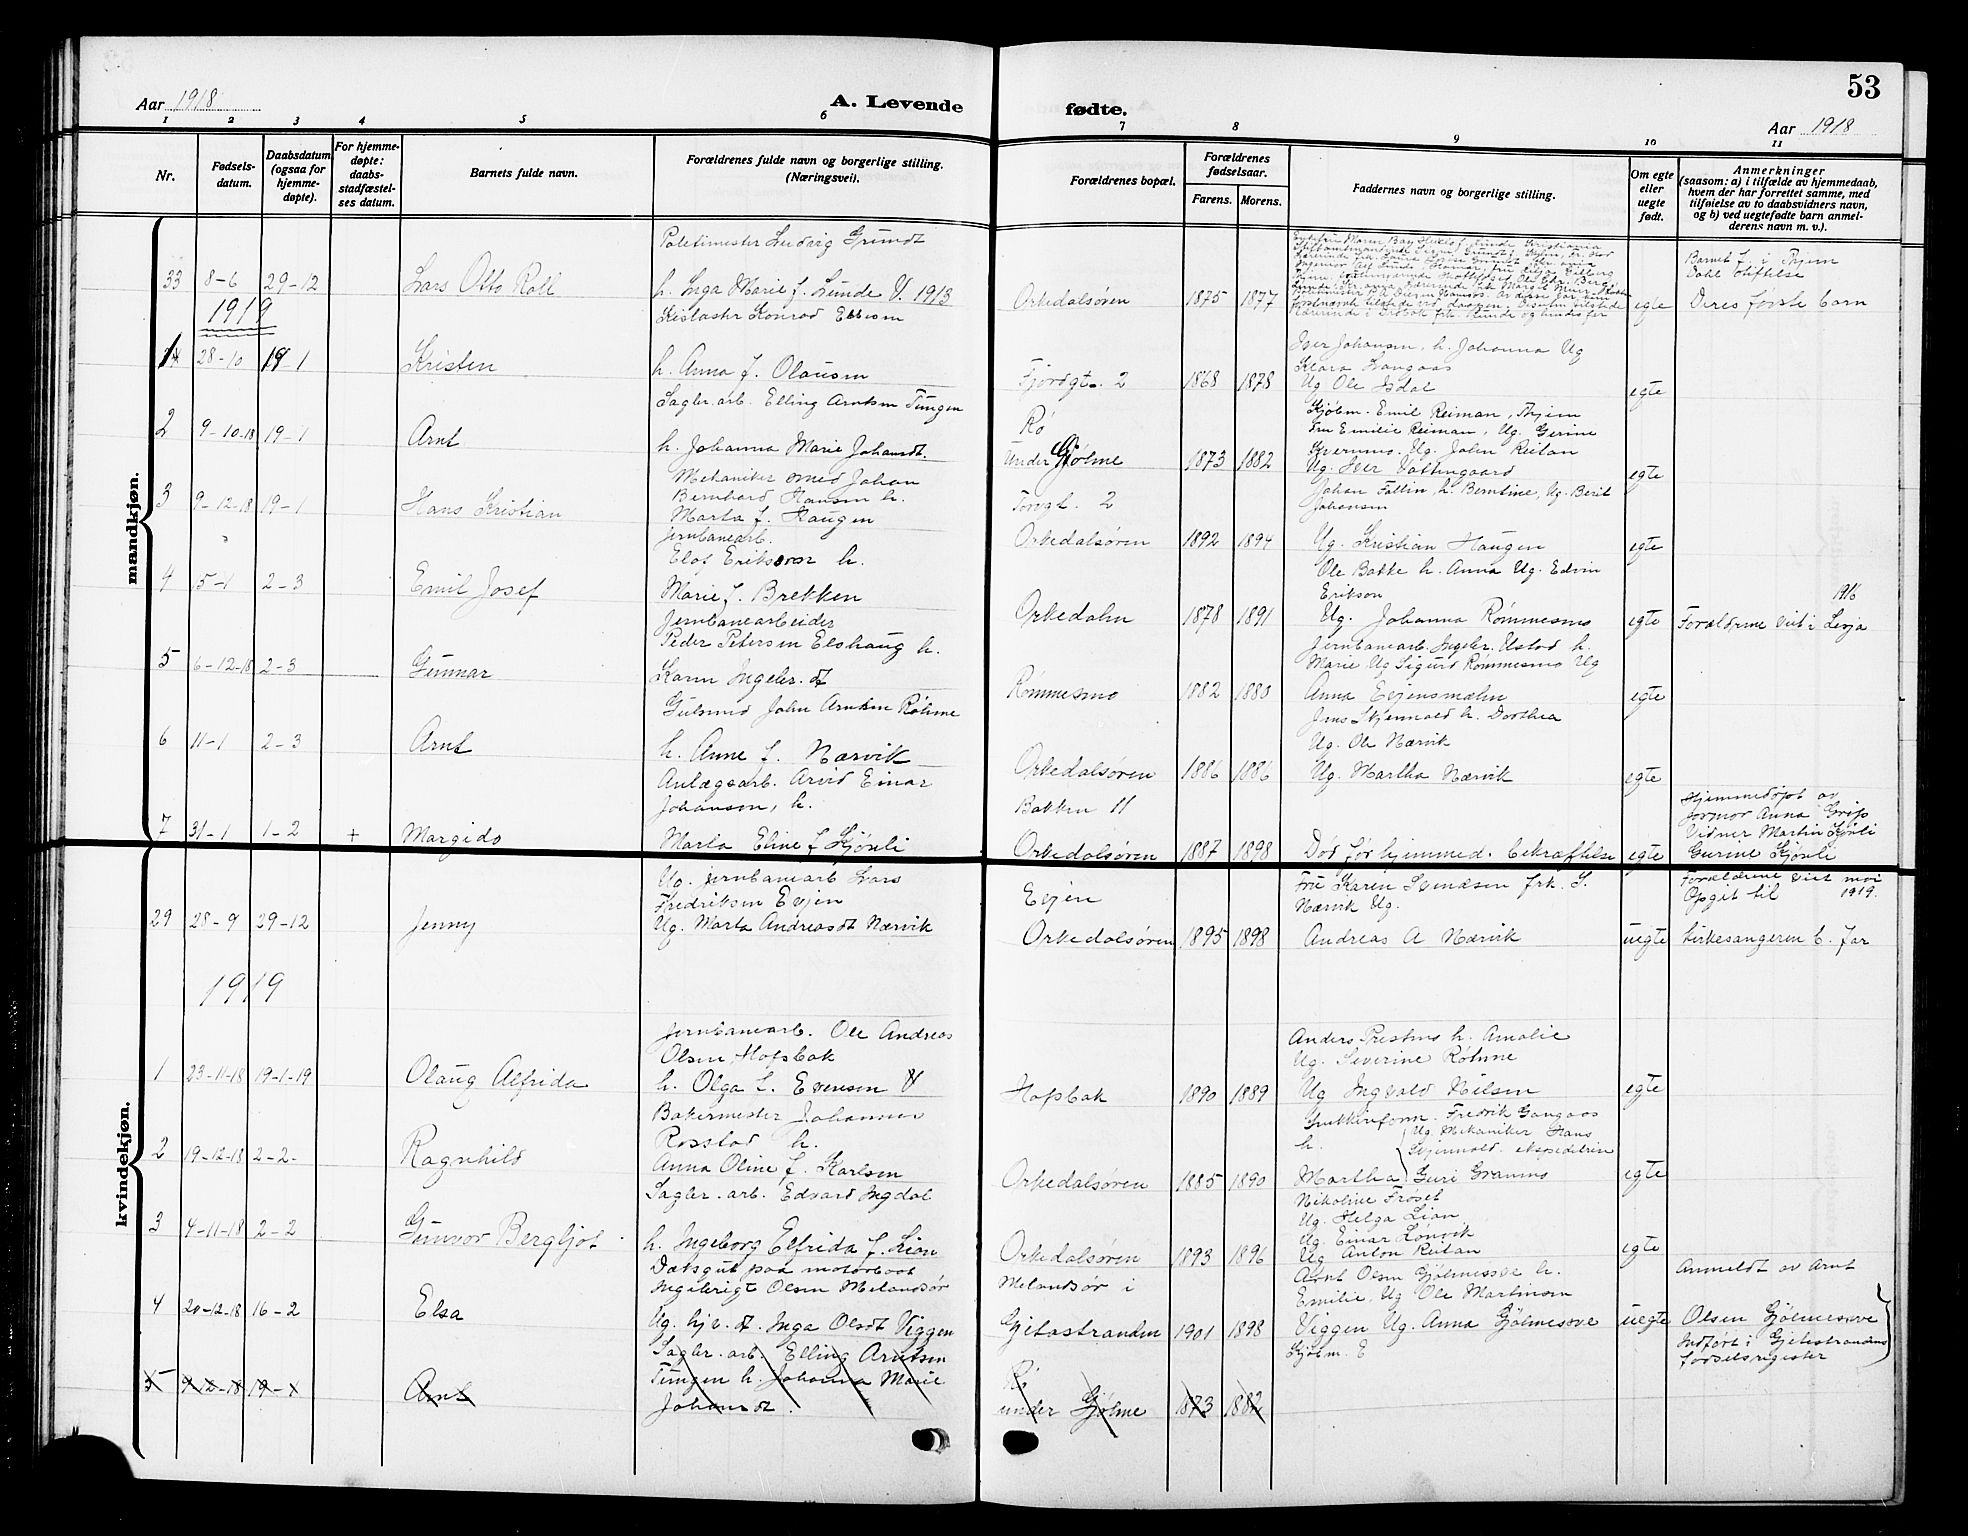 53
Aar 1918
A. Levende
fødte.
Aar 1918
1 2 3 4 5 6 7 8 9 10 11
Nr.
Fødsels-
datum.
Daabsdatum
(ogsaa for
hjemme-
døpte).
For hjemme-
døpte:
daabs-
stadfæstel-
ses datum.
Barnets fulde navn.
Forældrenes fulde navn og borgerlige stilling.
(Næringsvei).
Forældrenes bopæl.
Forældrenes
fødselsaar.
Farens. Morens.
Faddernes navn og borgerlige stilling.
Om egte
eller
uegte
født.
Anmerkninger
(saasom: a) i tilfælde av hjemmedaab,
hvem der har forrettet samme, med
tilføielse av to daabsvidners navn,
og b) ved uegtefødte barn anmel-
derens navn m. v.).
mandkjøn.
33 8-6 29-12 Lars Otto Roll
Politimester Ludvig Grundt
h. Inga Marie f. Lunde V. 1913
Orkedalsøren 1875 1877
egte
Barnet f. i Thjem
Dahl Stiftelse
Deres første barn
1919
1 28-10 19-1 Kristen
Konrad Ellisen
h. Anna f. Olausen
Fjordgt. 2 1868 1878
Iver Johansen, h. Johanna Ug
Klara Langaas
Ug Ole Isdal
egte
2 9-10-18 19-1 Arnt
Sagbr. arb. Elling Arntsen Tungen
h. Johanna Marie Johansdt.
Rø
under Gjølme 1873 1882
Kjøbm. Emil Reiman, Thjem
Fru Emilie Reiman, Ug. Gerine
Ug. John Reitan
Ug. Iver Vattengaard
egte
3 9-12-18 19-1 Hans Kristian
Mekaniker smed Johan
Bernhard Hansen h.
Marta f. Haugen
Torvgt. 2
Orkedalsøren 1892 1894
Johan Follin, h. Berntine, Ug. Berit
Johansen
Ug. Kristian Haugen
egte
4 5-1 2-3 Emil Josef
Jernbanearb.
Elof Eriksson h.
Marie f. Brekken
Orkedalen 1878 1891
Ole Bakke h. Anna Ug. Edvin
Erikson
Ug. Johanna Rømmesmo
egte
1916
Forældrene viet i Lesja
5 6-12-18 2-3 Gunnar
Jernbanearbeider
Peder Petersen Elshaug h.
Karen Ingebr. dt
Rømmesmo 1882 1883
Jernbanearb. Ingebr. Ustad h.
Marie Ug Sigurd Rømmesmo Ug
Anna Evjensmælen
egte
6 11-1 2-3 Arnt
Gulsmed John Arntsen Røhme
h. Anne f. Nærvik
Orkedalsøren 1886 1886
Jens Skjenald h. Dorthea
Ug. Ole Nærvik
Ug. Martha Nærvik
egte
7 31-1 1-2 + Margido
Anlægsarb. Arvid Einar
Johanson, h.
Marta Eline f. Kjönli
Bakken 11
Orkedalsøren 1887 1898
Død før hjemmed. bekræftelse
egte
Hjemmedøpt av
jormor Anna Grip
Vidner Martin Kjönli
Gurine Kjönli
kvindekjøn.
29 28-9 29-12 Jenny
Ug. Jernbanearb Lars
Fredriksen Evjen
Ug. Marta Andreasdt Nærvik
Evjen
Orkedalsøren 1895 1898
Fru Karen Svendsen frk. S.
Nærvik Ug.
Andreas A Nærvik
uegte
Forældrene viet mai
Opgit til 1919.
kirkesangeren b. Far
1919
1 23-11-18 19-1-19 Olaug Alfrida
Jernbanearb. Ole Andreas
Olsen Hofsbak
h. Olga f. Evensen V
Hofsbak 1890 1889
Anders Prestmo h. Amalie
Ug. Severine Røhme
Ug Ingvald Nilsen
egte
2 19-12-18 2-2- Ragnhild
Bakermester Johannes
Rosstad h.
Anna Oline f. Karlsen
Orkedalsøren 1885 1890
Snekkerform. Fredrik Gangaas
h. Ug. Mekaniker Hans
Skjenald. ekspeditrise
Martha Guri Gramno
egte
3 4-11-18 2-2 Gunvor Bergljot
Sagbr. arb. Edvard Ingdal
h. Ingeborg Elfrida f. Lian
Orkedalsøren 1893 1896
Nikoline Frøset
Ug. Helga Lian
Ug. Einar Lonvik
Ug Anton Reitan
egte
4 20-12-18 16-2 Elsa
Dæksgut paa motorbaat
Ingebrigt Olsen Melandsør
Ug. hje. dt. Inga Olsdt Viggen
Melandsør i
Gjetastranden 1901 1898
Arnt Olsen Gjølmesøve h.
Emilie, Ug Ole Martinsen
Viggen Ug. Anna Gjølmesøve
Kjøbm. E
uegte
Anmeldt av Arnt
Olsen Gjølmesøve
Indført i Gjetastrandens
fødselsregister
5 9-12-18 19-1 Arnt
Sagbr. arb. Elling Arntsen
Tungen h. Johanna Marie
Johansdt.
Rø
under Gjølme 1873 1882